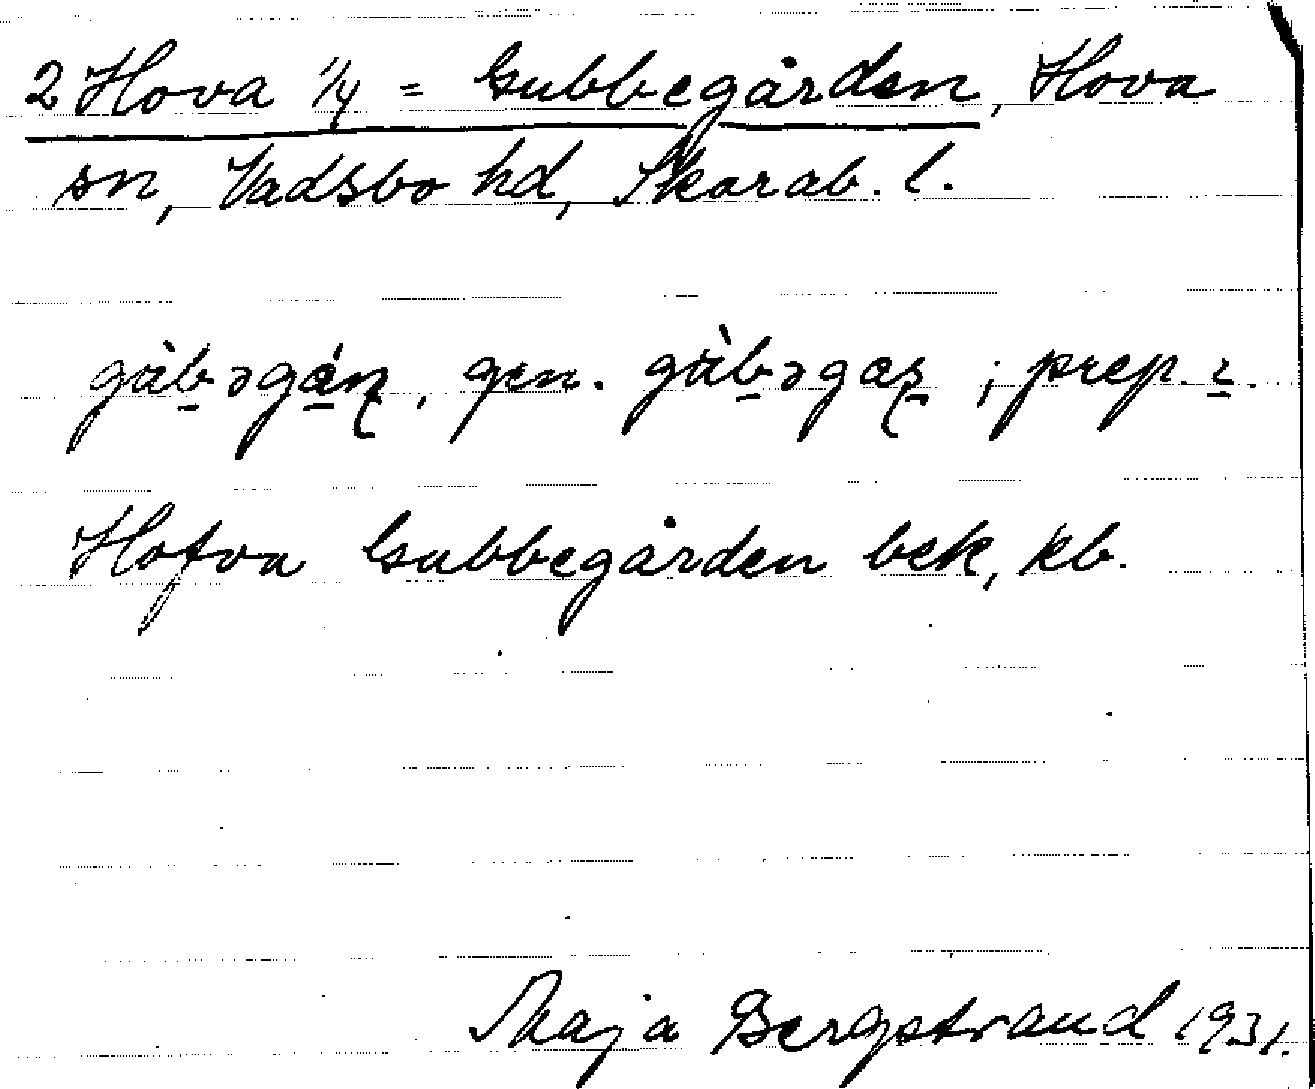 2 Hova 1/4 = Gubbegården, Hova
sn, Vadsbo hd, Skarab. l.
gen. ; prep. ɩ.
Hofva Gubbegården bek, kb.
Maja Bergstrand 1931.